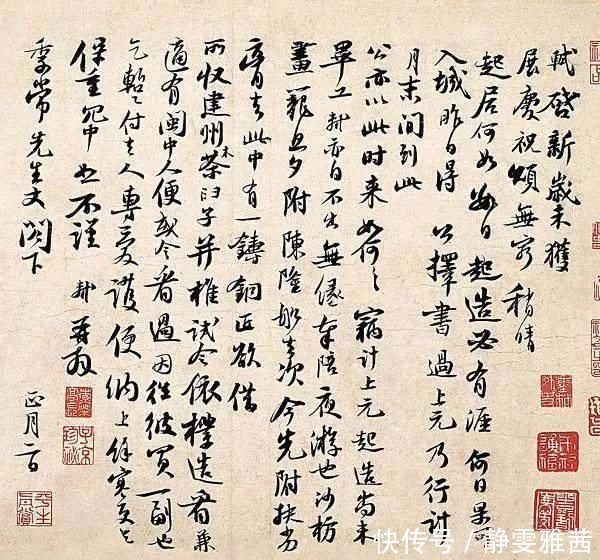 軾啓新歲未獲
展慶祝頌無窮稍晴
起居何如數日起造必有涯何日果可
入城昨日得公擇書過上元乃行計
月末間到此
公亦以此時來如何々竊計上元起造尚未
畢工軾亦自不出無緣奉陪夜游也沙枋
畫籠旦夕附陳隆船去次今先附扶劣
膏去此中有一鑄銅匠欲借
所收建州木茶臼子并椎試令依樣造看兼
適有閩中人便或令看過因往彼買一副也
乞暫付去人專愛護便納上餘寒更乞
保重冗中恕不謹軾再拜
季常先生丈閣下
正月二日
快传号/静雯雅茜